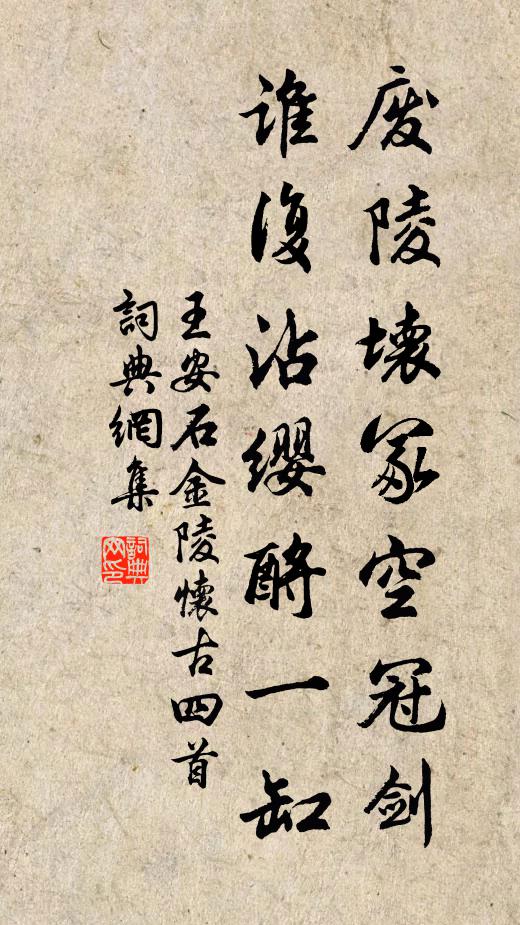 废陵壊冢空冠剑
谁复沾缨酹一缸
王安石金陵懷古四首
詞典網集
詞典网印